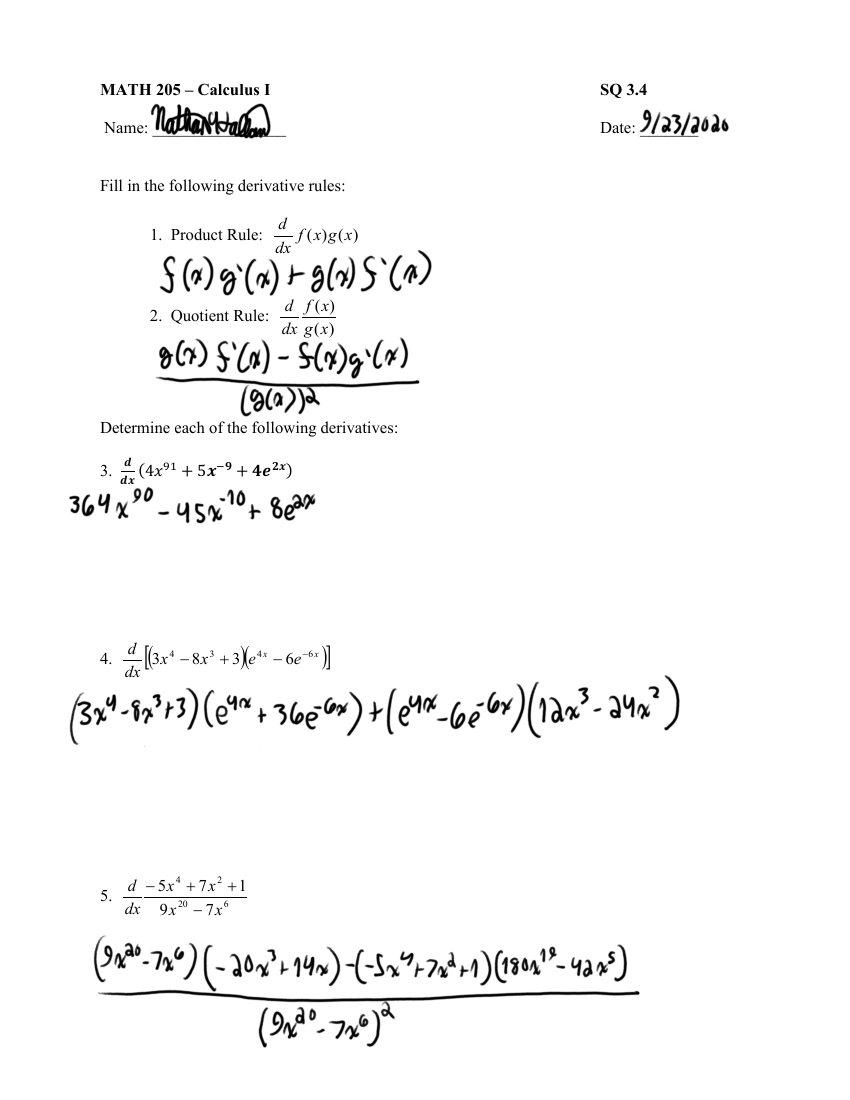 MATH 205 – Calculus I SQ 3.4
Name: Nathan Date: 9/23/2020
Fill in the following derivative rules:
1. Product Rule: d/dx f(x)g(x)
f(x)g'(x) + g(x)f'(x)
2. Quotient Rule: d/dx f(x)/g(x)
g(x) f'(x) - f(x)g'(x)
(g(x))²
Determine each of the following derivatives:
3. d/dx (4x⁹¹ + 5x⁻⁹ + 4e²ˣ)
364x⁹⁰ - 45x⁻¹⁰ + 8e²ˣ
4. d/dx [(3x⁴ − 8x³ + 3)(e⁴ˣ − 6e⁻⁶ˣ)]
(3x⁴ - 8x³ + 3)(e⁴ˣ + 36e⁻⁶ˣ) + (e⁴ˣ - 6e⁻⁶ˣ)(12x³ - 24x²)
5. d/dx (−5x⁴ + 7x² + 1)/(9x²⁰ − 7x⁶)
(9x²⁰ - 7x⁶)(-20x³ + 14x) - (-5x⁴ + 7x² + 1)(180x¹⁹ - 42x⁵)
(9x²⁰ - 7x⁶)²